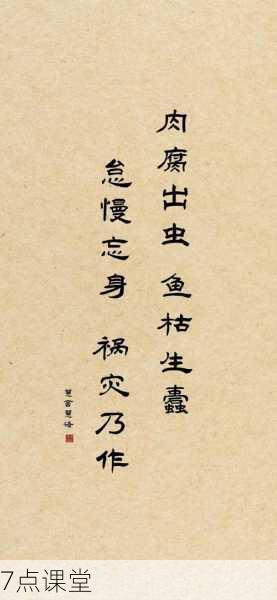 肉腐出虫 鱼枯生蠹
怠慢忘身 祸灾乃作
慧言慧语
7点课堂